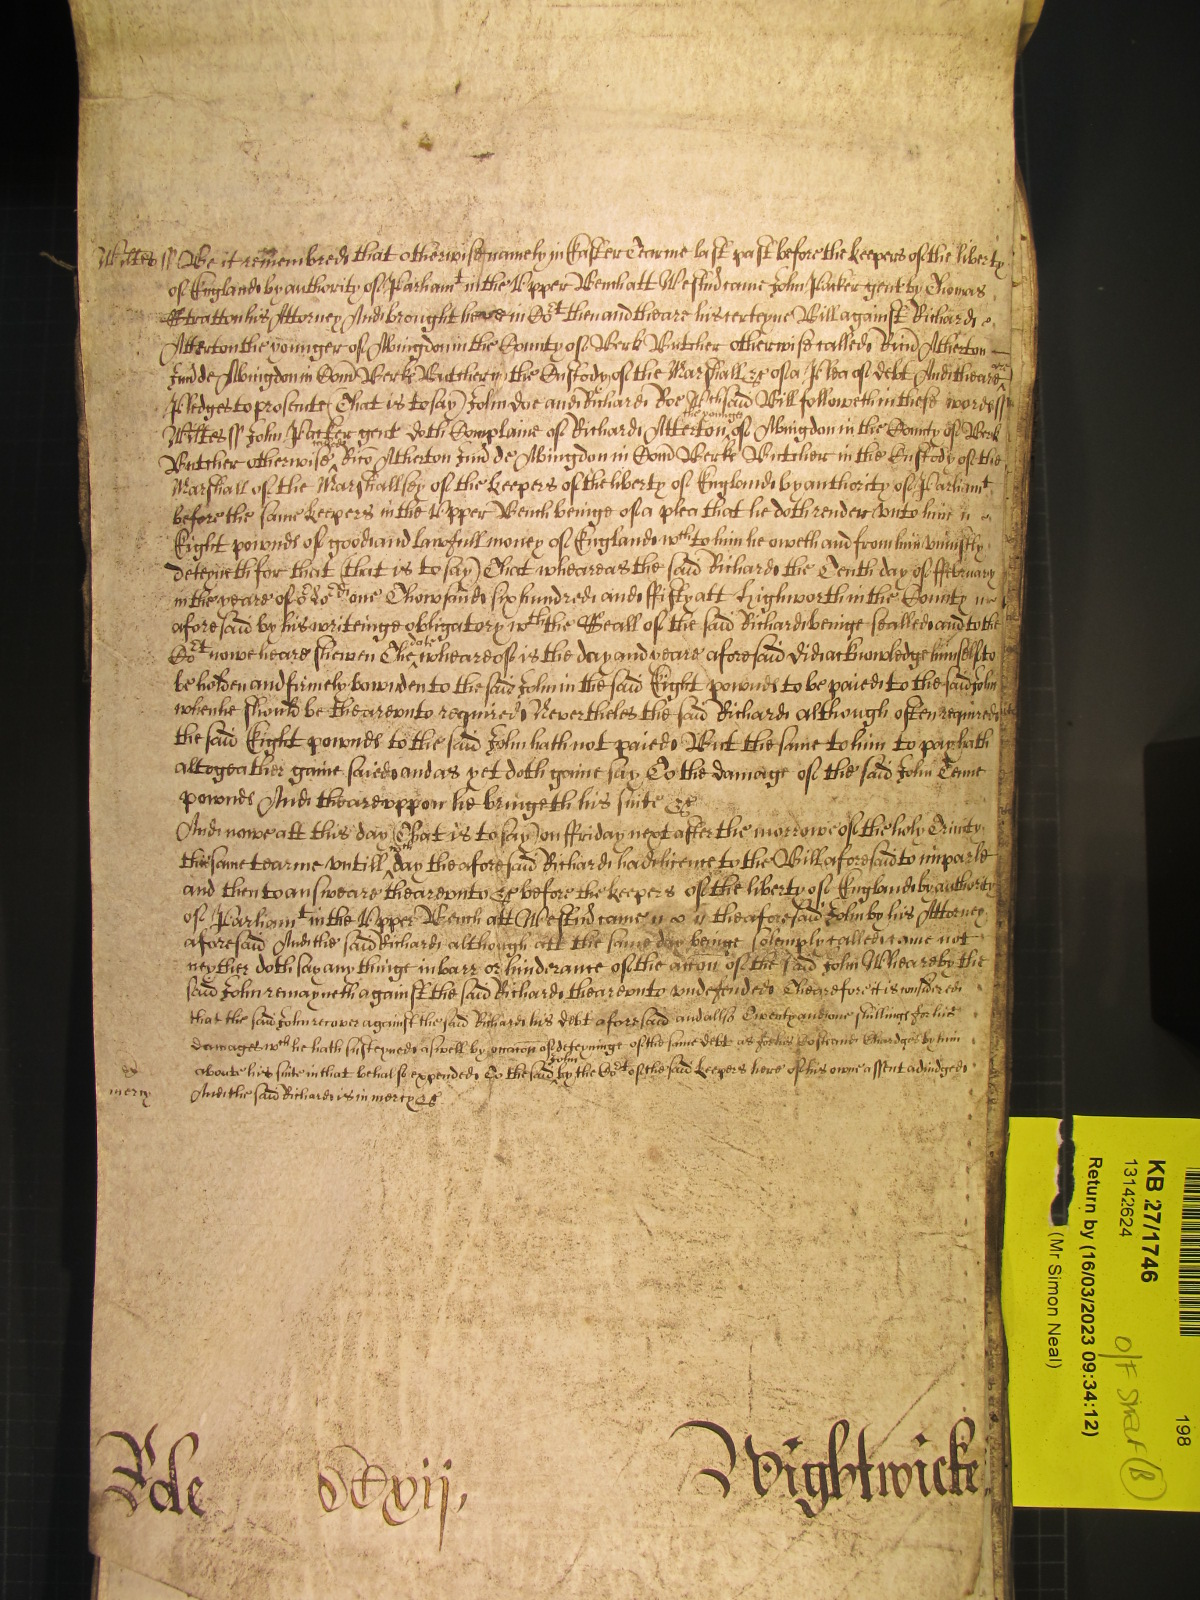 Wiltes ss Be it remembred that otherwise namely in Easter Tearme last past before the Keepers of the liberty
of England by authority of Parliamt in the Upper Bench att Westmr came John Packer gent by Thomas
Stratton his Attorney And brought heare in Cort then and theare his certeyne Bill against Richard
Atterton the younger of Abingdon in the County of Berk Butcher otherwise called Ricus Atherton
Jun de Abingdon in Com Berks Butcher in the Custody of the Marshall &c of a Plea of debt And theare are
Pledges to prosecute (That is to say) John doe and Richard Roe Wch said Bill followeth in these words ss
Wiltes ss John Packer gent doth Complaine of Richard Atterton the younger of Abingdon in the County of Berk
Butcher otherwise called Rico Atherton Jun de Abingdon in Com Berks Butcher in the Custody of the
Marshall of the Marshallsey of the Keepers of the liberty of England by authority of Parliamt
before the same Keepers in the Upper Bench beinge of a plea that he doth render unto him
Eight pownds of good and lawfull money of England wch to him he oweth and from him uniustly
deteyneth for that (that is to say) That wheareas the said Richard the Tenth day of ffebruary
in the yeare of or Lord one Thowsand six hundred and ffifty att Highworth in the County
aforesaid by his writeinge obligatory wth the Seall of the said Richard beinge sealled and to the
Cort nowe heare shewen The date wheareof is the day and yeare aforesaid did acknowledge himself to
be holden and firmely bownden to the said John in the said Eight pownds to be paied to the said John
when he should be theareunto required Nevertheles the said Richard although often required
the said Eight pownds to the said John hath not paied But the same to him to pay hath
altogeather gaine saied and as yet doth gaine say To the damage of the said John Tenne
pownds And theareuppon he bringeth his suite &c
And nowe att this day (That is to say) on ffriday next after the morrowe of the holy Trinity
the same tearme untill wch day the aforesaid Richard had licence to the Bill aforesaid to imparle
and then to answeare theareunto &c before the Keepers of the liberty of England by authority
of Parliamt in the Upper Bench att Westmr came the aforesaid John by his Attorney
aforesaid And the said Richard although att the same day beinge solemply called came not
neyther doth say any thinge in barr or hinderance of the accon of the said John Wheareby the
said John remayneth against the said Richard theareunto undefended Thearefore it is considered
that the said John recover against the said Richard his debt aforesaid and allso Twenty and one shillings for his
damages wch he hath susteyned aswell by occacon of deteyninge of the same debt as for his Costs and Chardges by him
about his suite in that behalfe expended To the said John by the Cort of the said Keepers here of his owne assent adiudged
mercy And the said Richard is in mercy &c
Role DCxvij. Wightwicke
KB 27/1746
13142624
Return by (16/03/2023 09:34:12)
(Mr Simon Neal)
198
O/F Straf (B)